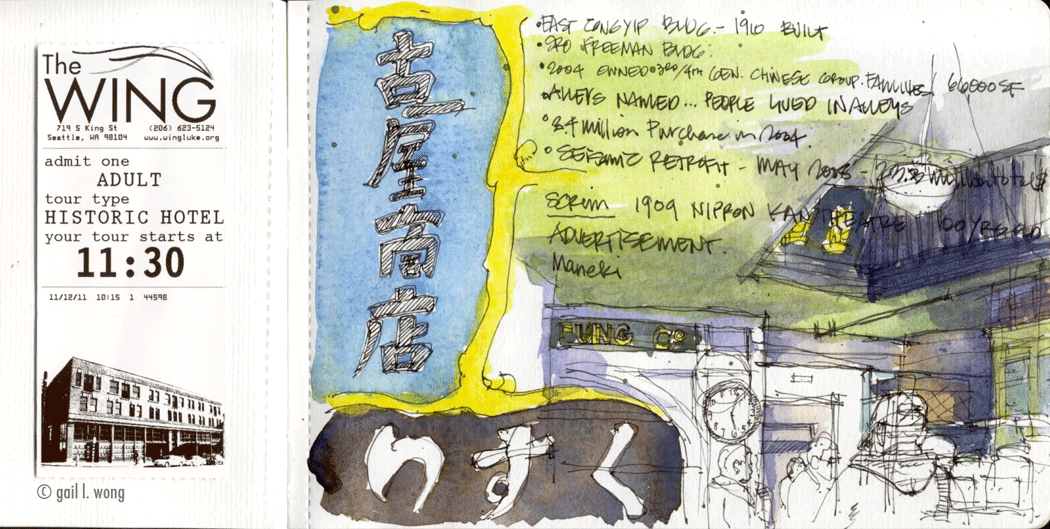 The
WING
719 S King St (206) 623-5124
Seattle, WA 98104 www.wingluke.org
admit one
ADULT
tour type
HISTORIC HOTEL
your tour starts at
11:30
11/12/11 10:15 1 44598
© gail l. wong
古屋商店
くすり
• EAST CONG YIP BLDG. - 1910 BUILT
• SRO FREEMAN BLDG.
• 2004 OWNED 3RD/4TH GEN. CHINESE GROUP. FAMILIES / 66000 SF
• ALLEYS NAMED... PEOPLE LIVED IN ALLEYS
• 3.4 million Purchase in 2004
• SEISMIC RETROFIT - MAY 2008 - million total $
SCRIM 1909 NIPPON KAN THEATRE 100 YRS OLD
ADVERTISEMENT.
Maneki
FUNG Co